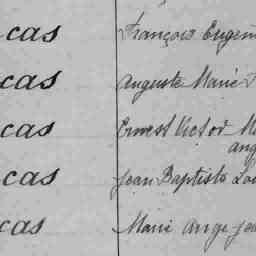 cas François Eugèn
cas Auguste Marie
cas Ernest Victor M
ang
cas Jean Baptiste Lou
cas Marie Ange Jea